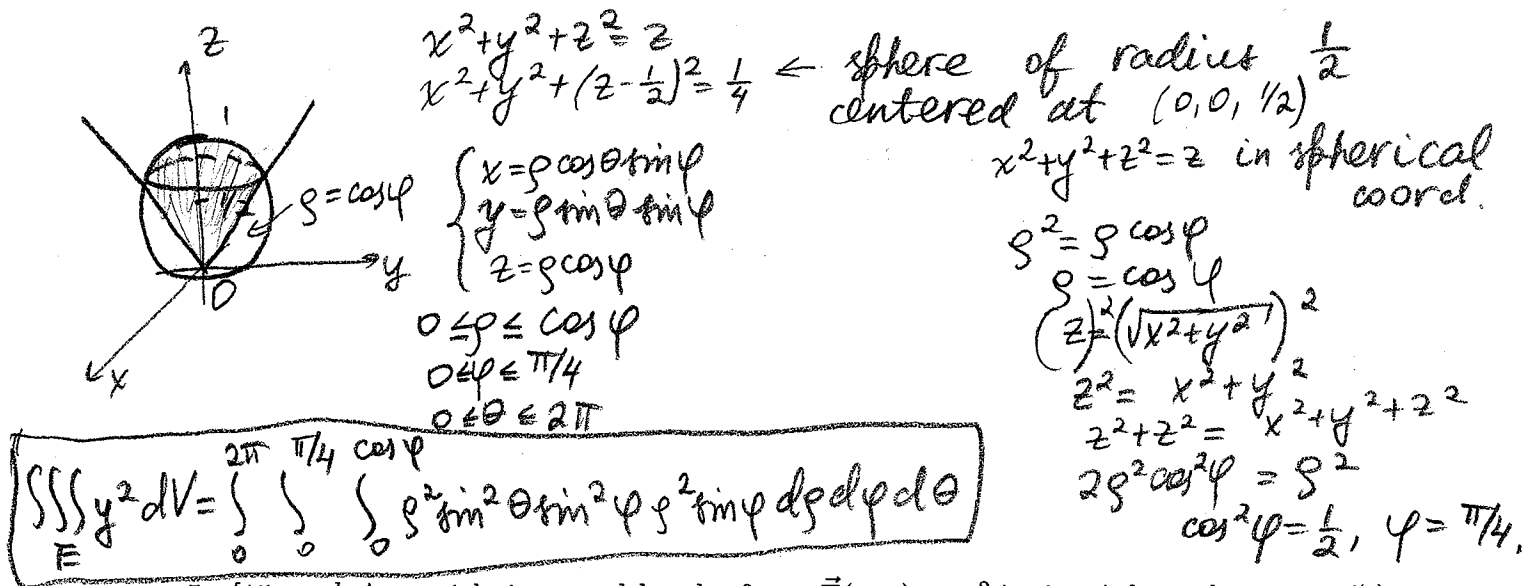 z
1
ρ = cosφ
y
0
x
x²+y²+z² = z
x²+y²+(z-½)² = ¼ ← sphere of radius ½
centered at (0,0,½)
{ x = ρcosθsinφ
y = ρsinθsinφ
z = ρcosφ
0 ≤ ρ ≤ cosφ
0 ≤ φ ≤ π/4
0 ≤ θ ≤ 2π
x²+y²+z² = z in spherical
coord.
ρ² = ρcosφ
ρ = cosφ
(z)² = (√(x²+y²))²
z² = x²+y²
z²+z² = x²+y²+z²
2ρ²cos²φ = ρ²
cos²φ = ½, φ = π/4.
∭_E y² dV = ∫₀^{2π} ∫₀^{π/4} ∫₀^{cosφ} ρ² sin²θ sin²φ ρ² sinφ dρ dφ dθ